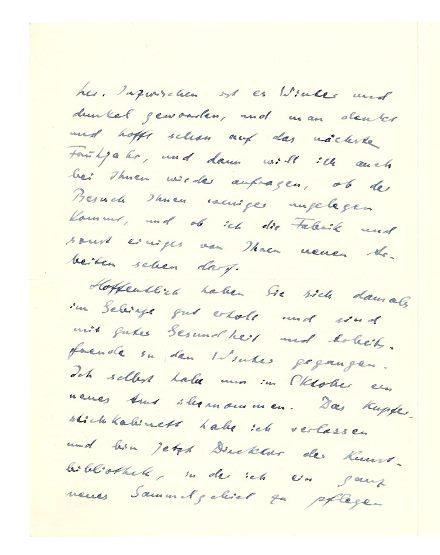 her. Inzwischen ist es Winter und
dunkel geworden, und man denkt
und hofft schon auf das nächste
Frühjahr, und dann will ich auch
bei Ihnen wieder anfragen, ob der
Besuch Ihnen weniger ungelegen
kommt, und ob ich die Fabrik und
sonst einiges von Ihren neuen Ar-
beiten sehen darf.
Hoffentlich haben Sie sich damals
im Gebirge gut erholt und sind
mit guter Gesundheit und Arbeits-
freude in den Winter gegangen.
Ich selbst habe nun im Oktober ein
neues Amt übernommen. Das Kupfer-
stichkabinett habe ich verlassen
und bin jetzt Direktor der Kunst-
bibliothek, in der ich ein ganz
neues Sammelgebiet zu pflegen